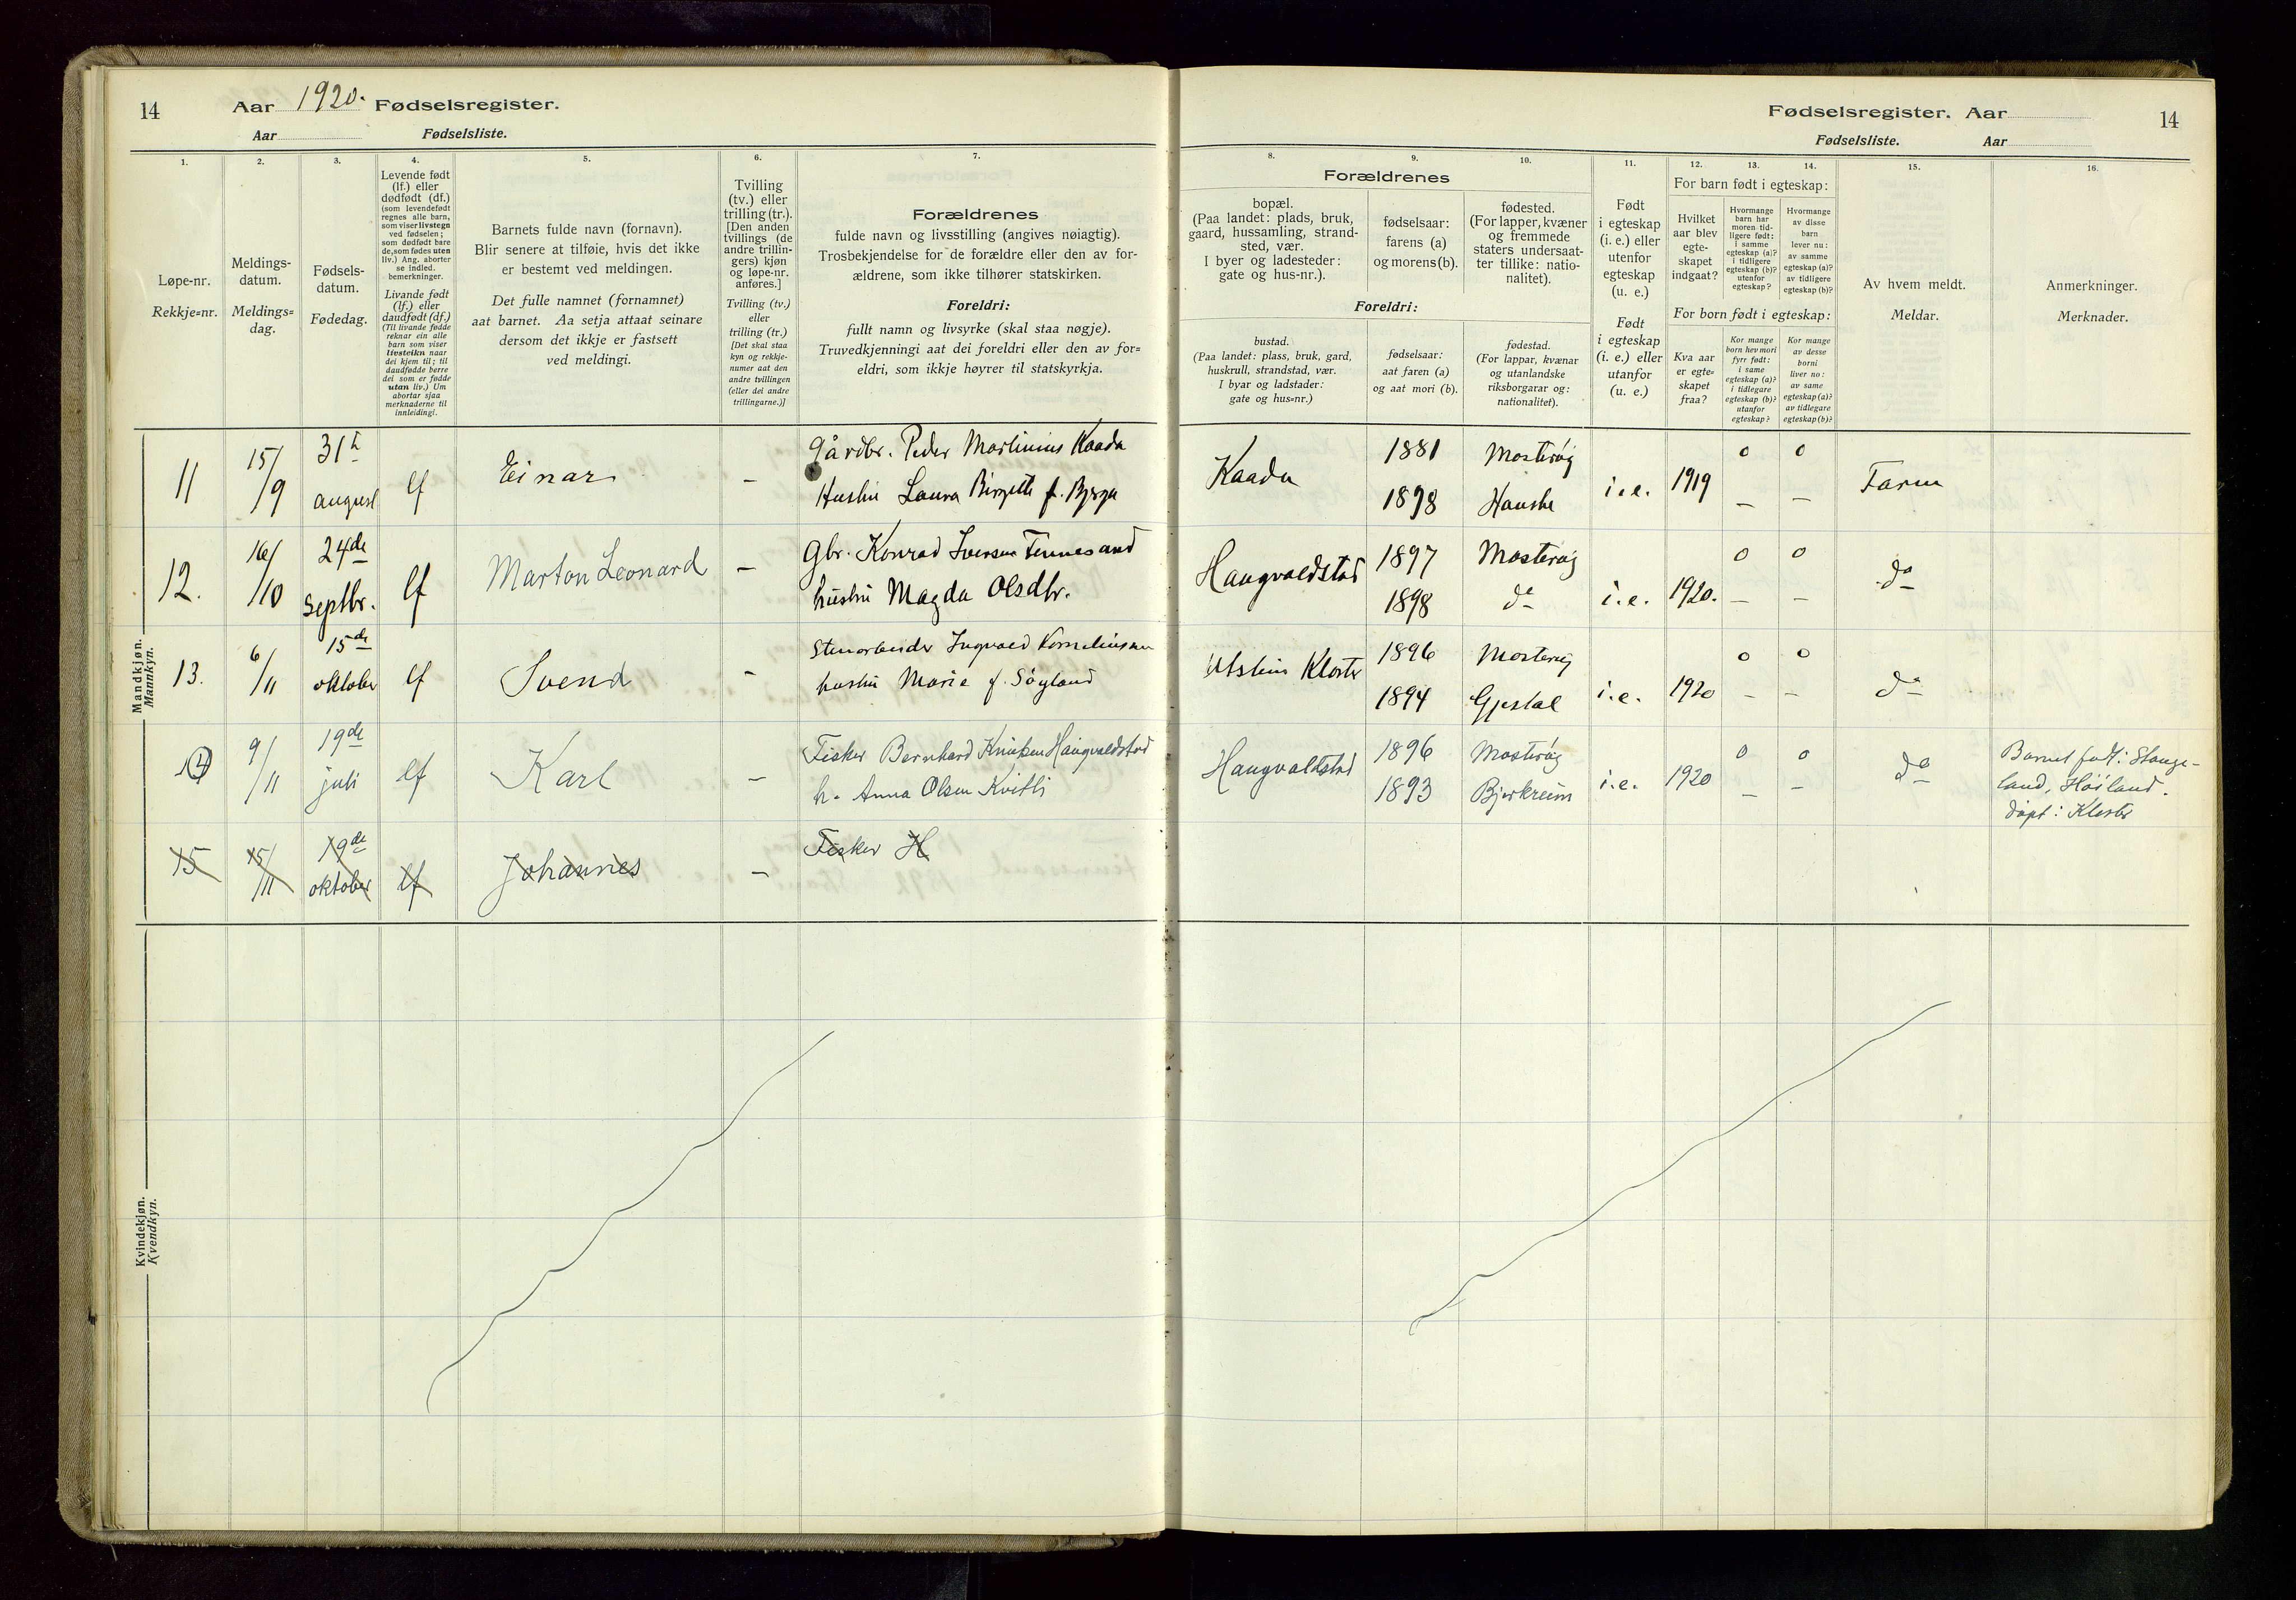 14 Aar 1920. Fødselsregister.
Aar Fødselsliste.
1. 2. 3. 4. 5. 6. 7.
Løpe-nr.
Rekkje=nr.
Meldings-
datum.
Meldings=
dag.
Fødsels-
datum.
Fødedag.
Levende født
(lf.) eller
dødfødt (df.)
(som levendefødt
regnes alle barn,
som viser livstegn
ved fødselen;
som dødfødt bare
de, som fødes uten
liv.) Ang. aborter
se indled.
bemerkninger.
Livande født
(lf.) eller
daudfødt (df.)
(Til livande fødde
reknar ein alle
barn som viser
livsteikn naar
dei kjem til; til
daudfødde berre
dei som er fødde
utan liv.) Um
abortar sjaa
merknaderne til
innleidingi.
Barnets fulde navn (fornavn).
Blir senere at tilføie, hvis det ikke
er bestemt ved meldingen.
Det fulle namnet (fornamnet)
aat barnet. Aa setja attaat seinare
dersom det ikkje er fastsett
ved meldingi.
Tvilling
(tv.) eller
trilling (tr.).
[Den anden
tvillings (de
andre trillin-
gers) kjøn
og løpe-nr.
anføres.]
Tvilling (tv.)
eller
trilling (tr.)
[Det skal staa
kyn og rekkje-
numer aat den
andre tvillingen
(eller dei andre
trillingarne.)]
Forældrenes
fulde navn og livsstilling (angives nøiagtig).
Trosbekjendelse for de forældre eller den av for-
ældrene, som ikke tilhører statskirken.
Foreldri:
fullt namn og livsyrke (skal staa nøgje).
Truvedkjenningi aat dei foreldri eller den av for=
eldri, som ikkje høyrer til statskyrkja.
Mandkjøn.
Mannkyn.
11 15/9 31te august lf Einar – Gårdbr. Peder Martinius Kaada
Hustru Laura Birgitte f. Bjerga
12. 16/10 24de Septbr. lf Marton Leonard – Gbr. Konrad Iversen Finnesand
hustru Magda Olsdtr.
13. 6/11 15de oktober lf Svend – Stenarbeider Ingvald Korneliussen
hustru Marie f. Søyland
14 9/11 19de juli lf Karl – Fisker Bernhard Knutsen Haugvaldstad
h. Anna Olsen Kvitli
15 15/11 19de oktober lf Johannes – Fisker H
Kvindekjøn.
Kvendkyn.
Fødselsregister. Aar 14
Fødselsliste. Aar
8. 9. 10. 11. 12. 13. 14. 15. 16.
Forældrenes
bopæl.
(Paa landet: plads, bruk,
gaard, hussamling, strand-
sted, vær.
I byer og ladesteder:
gate og hus-nr.).
fødselsaar:
farens (a)
og morens (b).
fødested.
(For lapper, kvæner
og fremmede
staters undersaat-
ter tillike: natio-
nalitet).
Foreldri:
bustad.
(Paa landet: plass, bruk, gard,
huskrull, strandstad, vær.
I byar og ladstader:
gate og hus=nr.)
fødselsaar:
aat faren (a)
og aat mori (b).
fødestad.
(For lappar, kvænar
og utanlandske
riksborgarar og:
nationalitet).
Født
i egteskap
(i. e.) eller
utenfor
egteskap
(u. e.)
Født
i egteskap
(i. e.) eller
utanfor
(u. e.)
For barn født i egteskap:
Hvilket
aar blev
egte-
skapet
indgaat?
Hvormange
barn har
moren tid-
ligere født:
i samme
egteskap (a)?
i tidligere
egteskap (b)?
utenfor
egteskap?
Hvormange
av disse
barn
lever nu:
av samme
egteskap (a)?
av tidligere
egteskap (b)?
For born født i egteskap:
Kva aar
er egte=
skapet
fraa?
Kor mange
born hev mori
fyrr født:
i same
egteskap (a)?
i tidlegare
egteskap (b)?
utanfor
egteskap?
Kor mange
av desse
borni
liver no:
av same
egteskap (a)?
av tidlegare
egteskap (b)?
Av hvem meldt.
Meldar.
Anmerkninger.
Merknader.
Kaada 1881 Mosterøy i.e. 1919 0 0 Faren
1898 Hauske – –
Haugvaldstad 1897 Mosterøy i.e. 1920. 0 0 do
1898 do – –
Utstein Kloster 1896 Mosterøy i.e. 1920 0 0 do
1894 Gjestal – –
Haugvaldstad 1896 Mosterøy i.e. 1920 0 0 do
1893 Bjerkreim – –
Barnet født: Stange-
land, Høiland.
døpt: Kloster